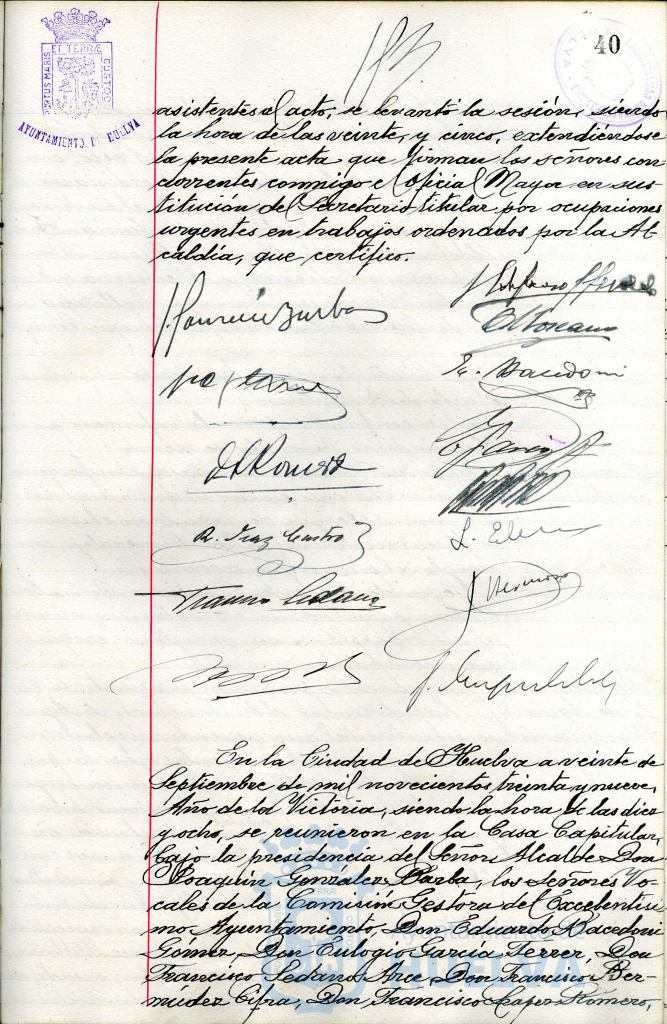 40
PORTUS MARIS ET TERRÆ CUSTODIA
AYUNTAMIENTO DE HUELVA
asistentes al acto, se levantó la sesión, siendo
la hora de las veinte, y cinco, extendiéndose
la presente acta que firman los señores con
currentes conmigo el Oficial Mayor en sus
titución del Secretario titular por ocupaciones
urgentes en trabajos ordenados por la Al-
caldía, que certifico.
E. Macedoni
R. Diaz Castro
En la Ciudad de Huelva a veinte de
Septiembre de mil novecientos treinta y nueve,
Año de la Victoria, siendo la hora de las diez
y ocho, se reunieron en la Casa Capitular,
bajo la presidencia del Señor Alcalde Don
Joaquín González Barba, los Señores Vo-
cales de la Comisión Gestora del Excelentísi
mo Ayuntamiento, Don Eduardo Macedoni
Gómez, Don Eulogio García Ferrer, Don
Francisco Sedano Arce, Don Francisco Ber-
múdez Cifra, Don Francisco López Romero,
HUELVA